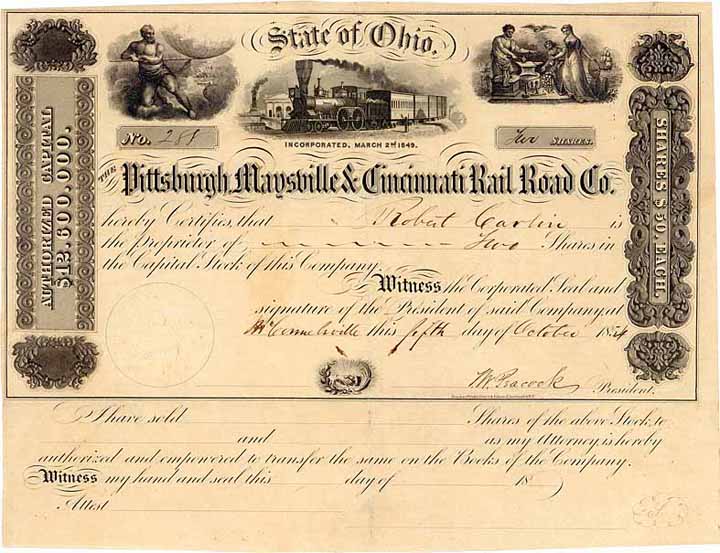 State of Ohio.
No. 281
Two SHARES.
INCORPORATED, MARCH 2nd 1849.
THE Pittsburgh, Maysville & Cincinnati Rail Road Co.
AUTHORIZED CAPITAL
$12,600,000.
SHARES $50, EACH.
hereby Certifies, that Robert Carlin is
the proprietor of Two Shares in
the Capital Stock of this Company.
Witness, the Corporated Seal and
signature of the President of said Company, at
McConnelsville this fifth day of October 1854
W. Peacock President.
I have sold Shares of the above Stock, to
and as my Attorney is hereby
authorized and empowered to transfer the same on the Books of the Company.
Witness my hand and seal this day of 18
Attest